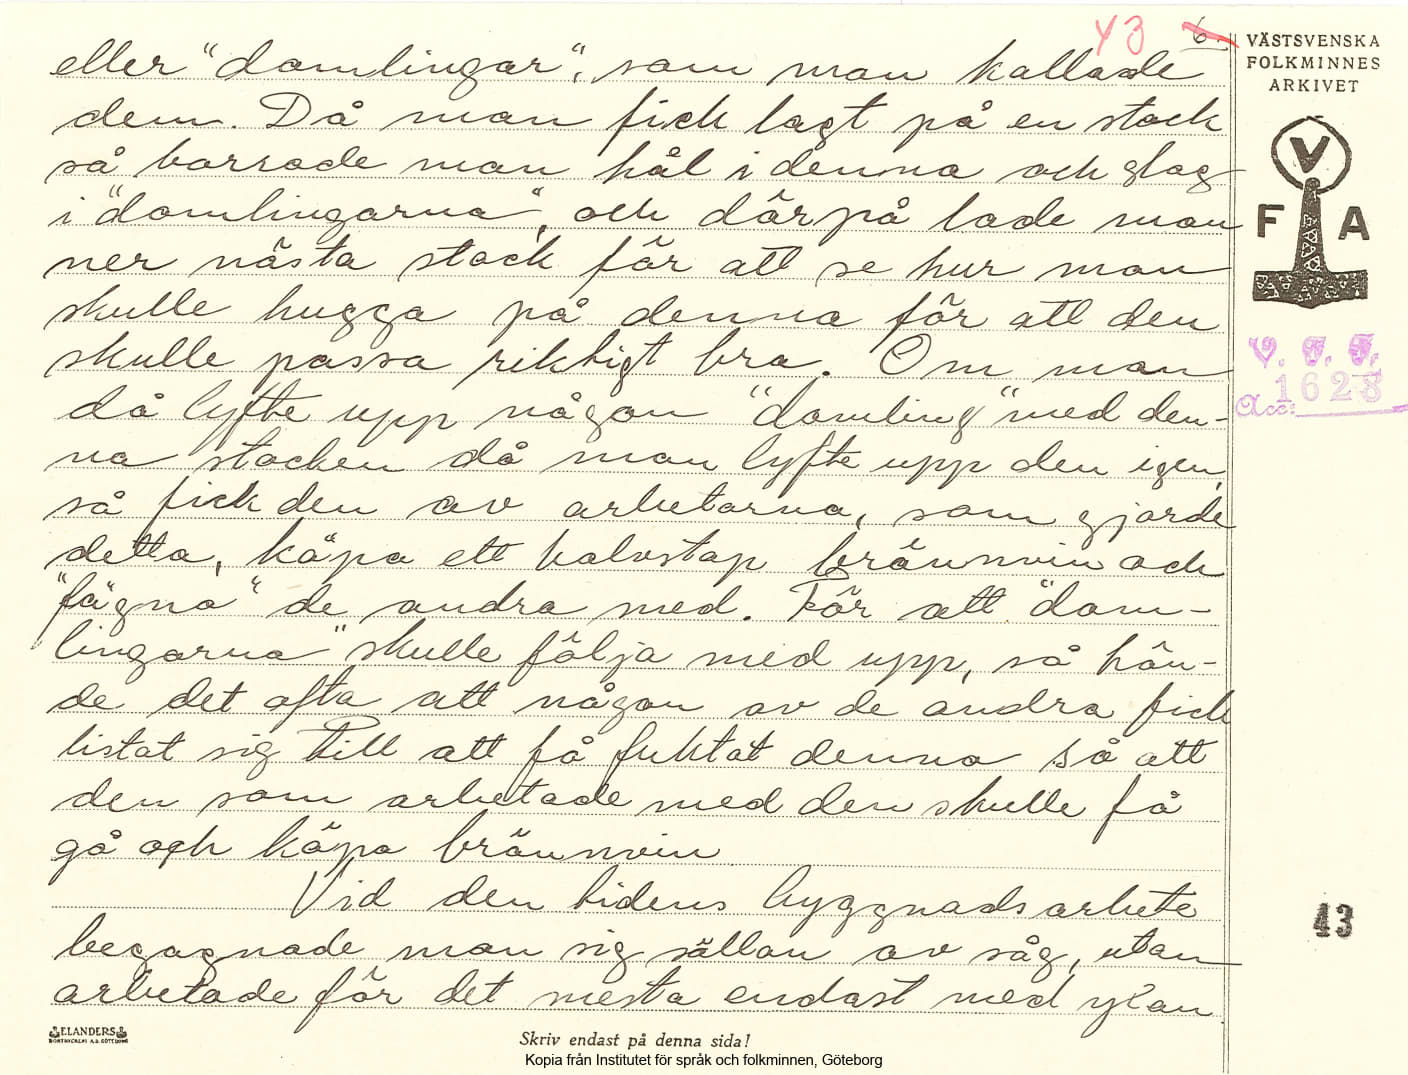 43
6.
VÄSTSVENSKA
FOLKMINNES
ARKIVET
V
F A
V. F. F.
1628
Acc:
eller "damlingar", som man kallade
dem. Då man fick lagt på en stock
så borrade man hål i denna och slog
i "damlingarna", och därpå lade man
ner nästa stock för att se hur man
skulle hugga på denna för att den
skulle passa riktigt bra. Om man
då lyfte upp någon "damling" med den-
na stocken då man lyfte upp den igen,
så fick den av arbetarna, som gjorde
detta, köpa ett halvstop brännvin och
"fägna" de andra med. För att "dam-
lingarna" skulle följa med upp, så hän-
de det ofta att någon av de andra fick
listat sig till att få fuktat denna så att
den som arbetade med den skulle få
gå och köpa brännvin.
Vid den tidens byggnadsarbete
begagnade man sig sällan av såg, utan
arbetade för det mesta endast med yxan.
43
ELANDERS
BOKTRYCKERI A.B. GÖTEBORG
Skriv endast på denna sida!
Kopia från Institutet för språk och folkminnen, Göteborg